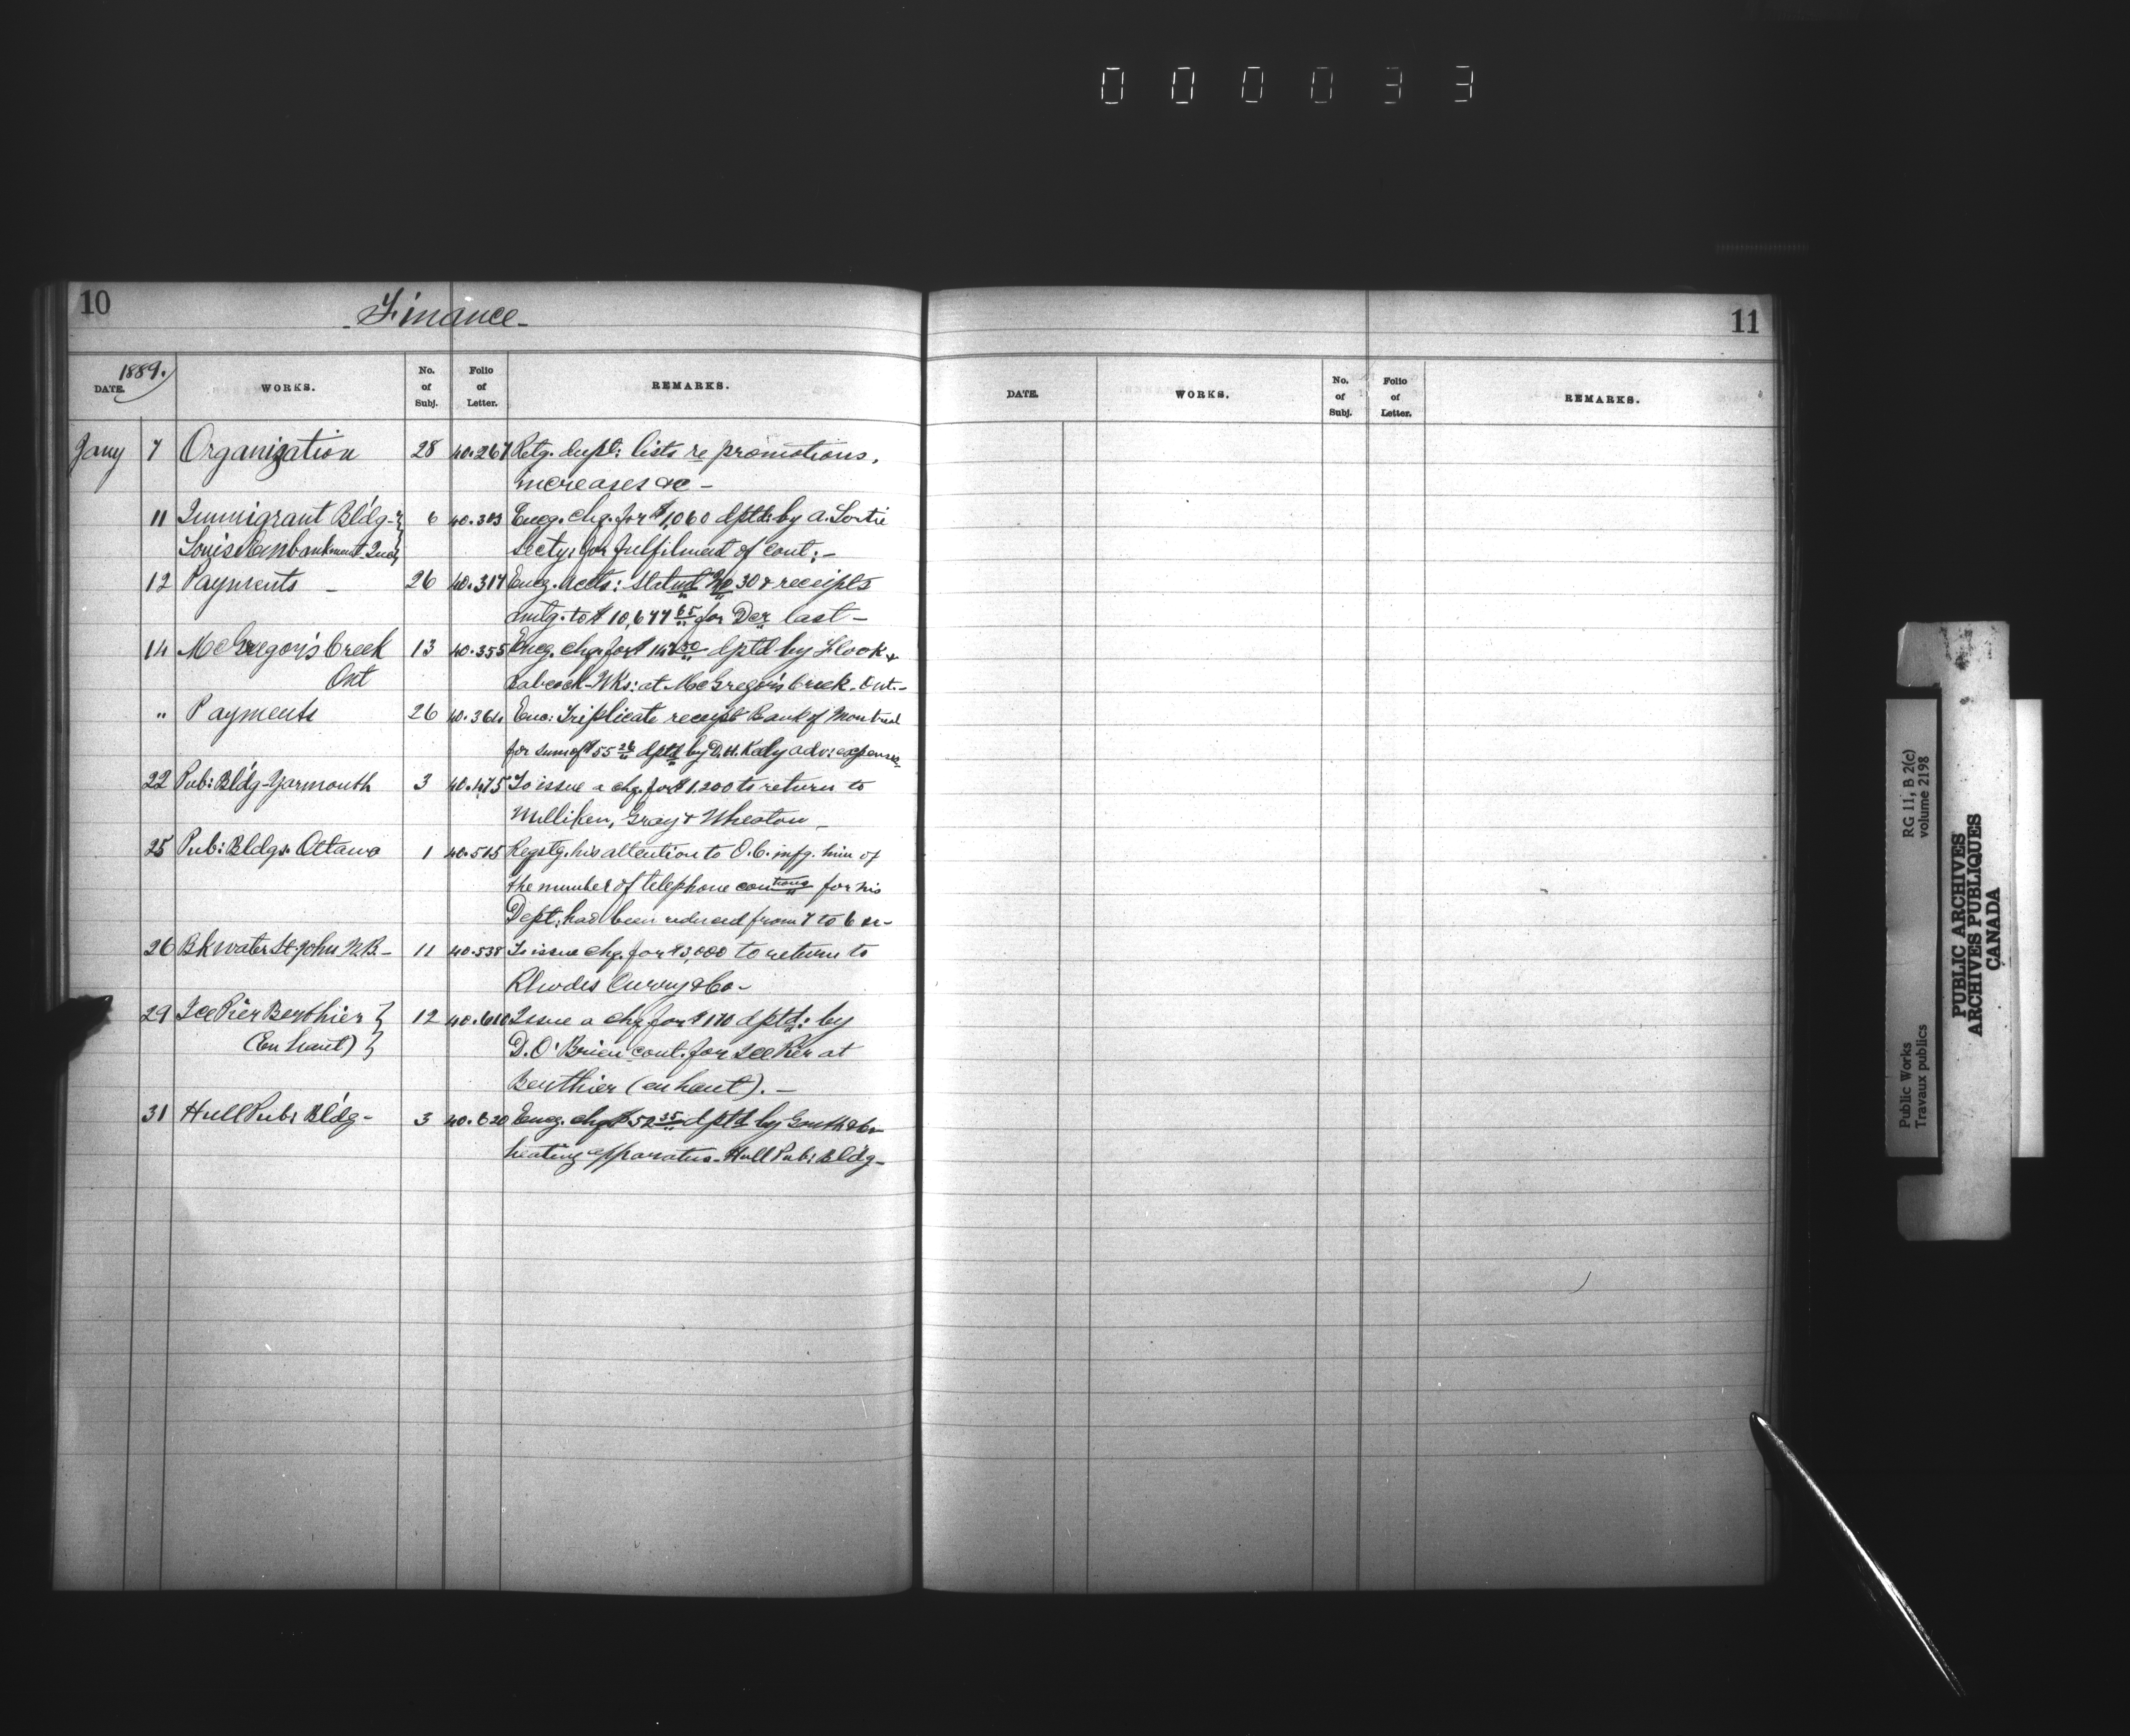 000033
10
- Finance -
1889.
DATE. WORKS. No. of Subj. Folio of Letter. REMARKS.
Jany 7 Organization 28 40.267 Retg. dupl: lists re promotions,
increases &c -
11 Immigrant Bldg- 6 40.303 Encg. chq. for $1,060 dptd: by A. Lortie
Louise Embankment Quec secty: for fulfilment of cont: -
12 Payments - 26 40.317 Encg. accts: Statmt No 30 & receipts
amtg. to $10,677 65 for Decr last -
14 McGregor's Creek 13 40.355 Encg. chq. for $ dptd by Flook &
Ont Babcock - Wks: at McGregor's Creek. Ont. -
" Payments 26 40.364 Enc: Triplicate receipt Bank of Montreal
for sum of $55 26 dptd by D.H. Kely adv: expenses
22 Pub: Bldg - Yarmouth 3 40.475 To issue a chq. for $1,200 to return to
Milliken, Gray & Wheaton -
25 Pub: Bldgs. Ottawa 1 40.515 Reqstg. his attention to O.C. infg. him of
the number of telephone contions for his
Dept: had been reduced from 7 to 6 &c -
26 Bkwater St. John N.B. - 11 40.538 To issue chq. for $3,000 to return to
Rhodes Curry & Co -
29 Ice Pier Berthier 12 40.610 Issue a chq. for $170 dptd: by
(En haut) D. O'Brien cont. for Ice Pier at
Berthier (en haut). -
31 Hull Pub: Bldg - 3 40.620 Encg. chq. $52 35 dptd by Garth & Co
heating apparatus - Hull Pub: Bldg -
11
DATE. WORKS. No. of Subj. Folio of Letter. REMARKS.
PUBLIC ARCHIVES
ARCHIVES PUBLIQUES
CANADA
RG 11, B 2(c)
volume 2198
Public Works
Travaux publics